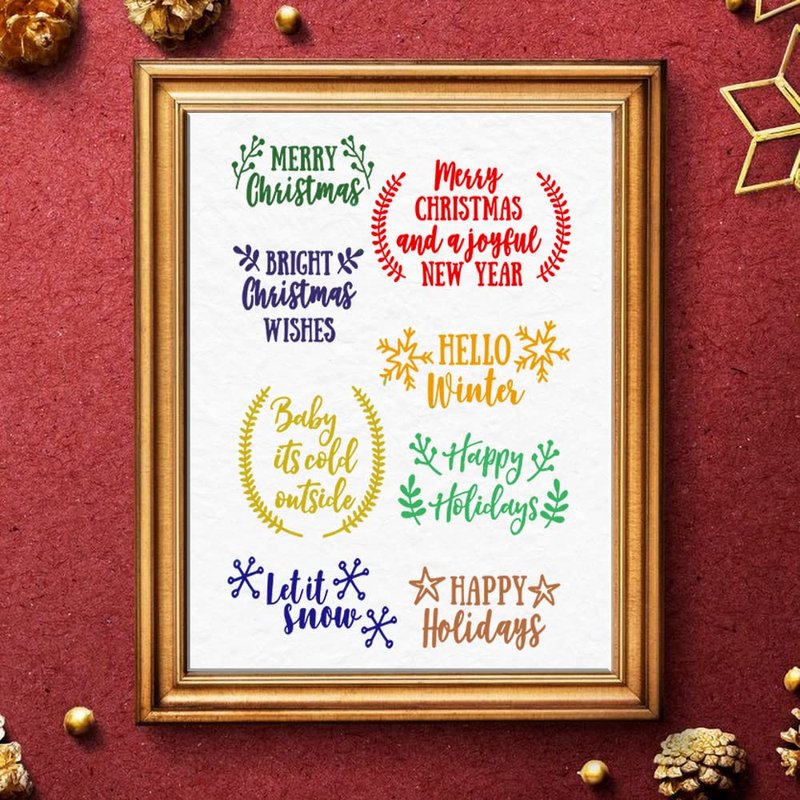 MERRY
Christmas
Merry
CHRISTMAS
and a joyful
NEW YEAR
BRIGHT
Christmas
WISHES
HELLO
Winter
Baby
its cold
outside
Happy
Holidays
Let it
snow
HAPPY
Holidays